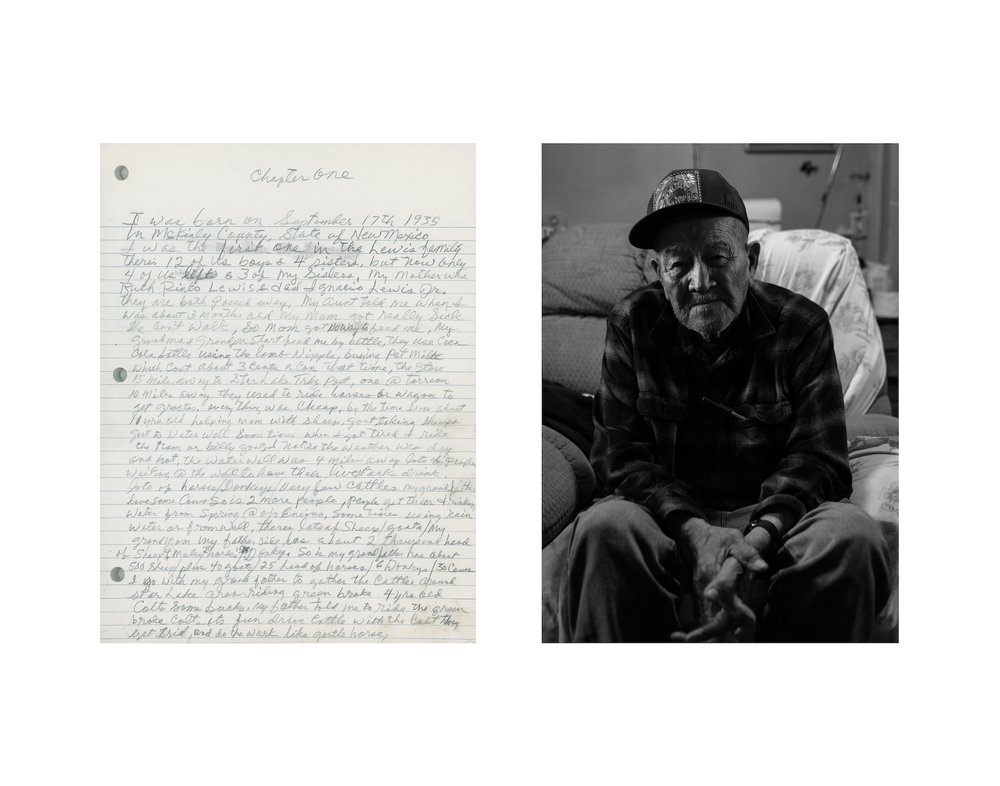 Chapter One
I was born on September 17th 1935
In McKinly County, State of New Mexico
I was the first one in the Lewis family
there's 12 of us boys & 4 sisters, but now only
4 of us left & 3 of my Sisters, My Mother was
Ruth Pinto Lewis & dad Ignacio Lewis Dr.
they are both passed away. My Aunt Told me when I
was about 3 months old my Mom got really Sick
She can't walk, So Mom got no way to feed me, My
Grandma & Grandpa Start feed me by bottle, they use Coca
Cola bottle using the lamb Nipple, buying Pet Milk
which Cost about 3 Cents a Can that time, the Store
15 miles away to Star Lake Trdg Post, one @ Torreon
10 miles away they used to ride horses or wagon to
get everything was Cheap, by the time I'm about
yrs old helping mom with sheep, goat, taking sheeps
goat to Water well Some times when I got tired I ride
the Ram or billy goat, the weather was dry
and hot, the water well was 4 miles away lots of People
waiting @ the well to have their livestock drink
lots of horses/Donkeys/Very few Cattles my grand father
have some Cows So is 2 more People, People get their drinking
Water from Spring @ ojo Encino, Some times using rain
Water or from well, theres lots of Sheep/goats/My
grandmom my father side has about 2 thousand head
of Sheep & Donky. So is my grand father has about
500 Sheep plus 40 goats/25 head of horses/6 Donkys/30 Cows
I go with my grand father to gather the Cattle around
Star Lake area riding green broke 4 yrs old
Colts Some bucks, my father told me to ride the green
broke Colts its fun drive Cattle with the Colt they
get tird, and do the work like gentle horse,